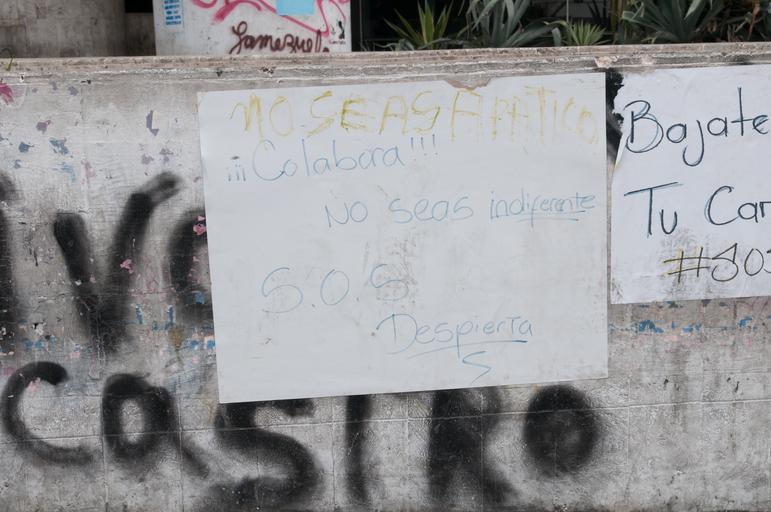 Jamezuel
NO SEAS APATICO
¡¡¡Colabora!!!
NO SEAS indiferente
S.O.S
Despierta
Bajate
Tu Car
#SOS
CASTRO